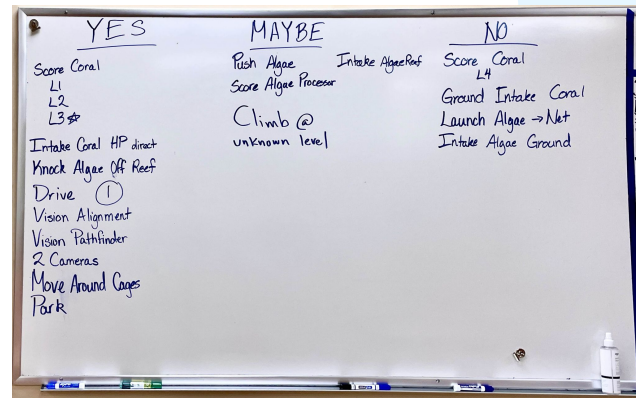 YES
Score Coral
L1
L2
L3
Intake Coral HP direct
Knock Algae Off Reef
Drive 1
Vision Alignment
Vision Pathfinder
2 Cameras
Move Around Cages
Park
MAYBE
Push Algae
Intake Algae Reef
Score Algae Processor
Climb @
unknown level
NO
Score Coral
L4
Ground Intake Coral
Launch Algae → Net
Intake Algae Ground